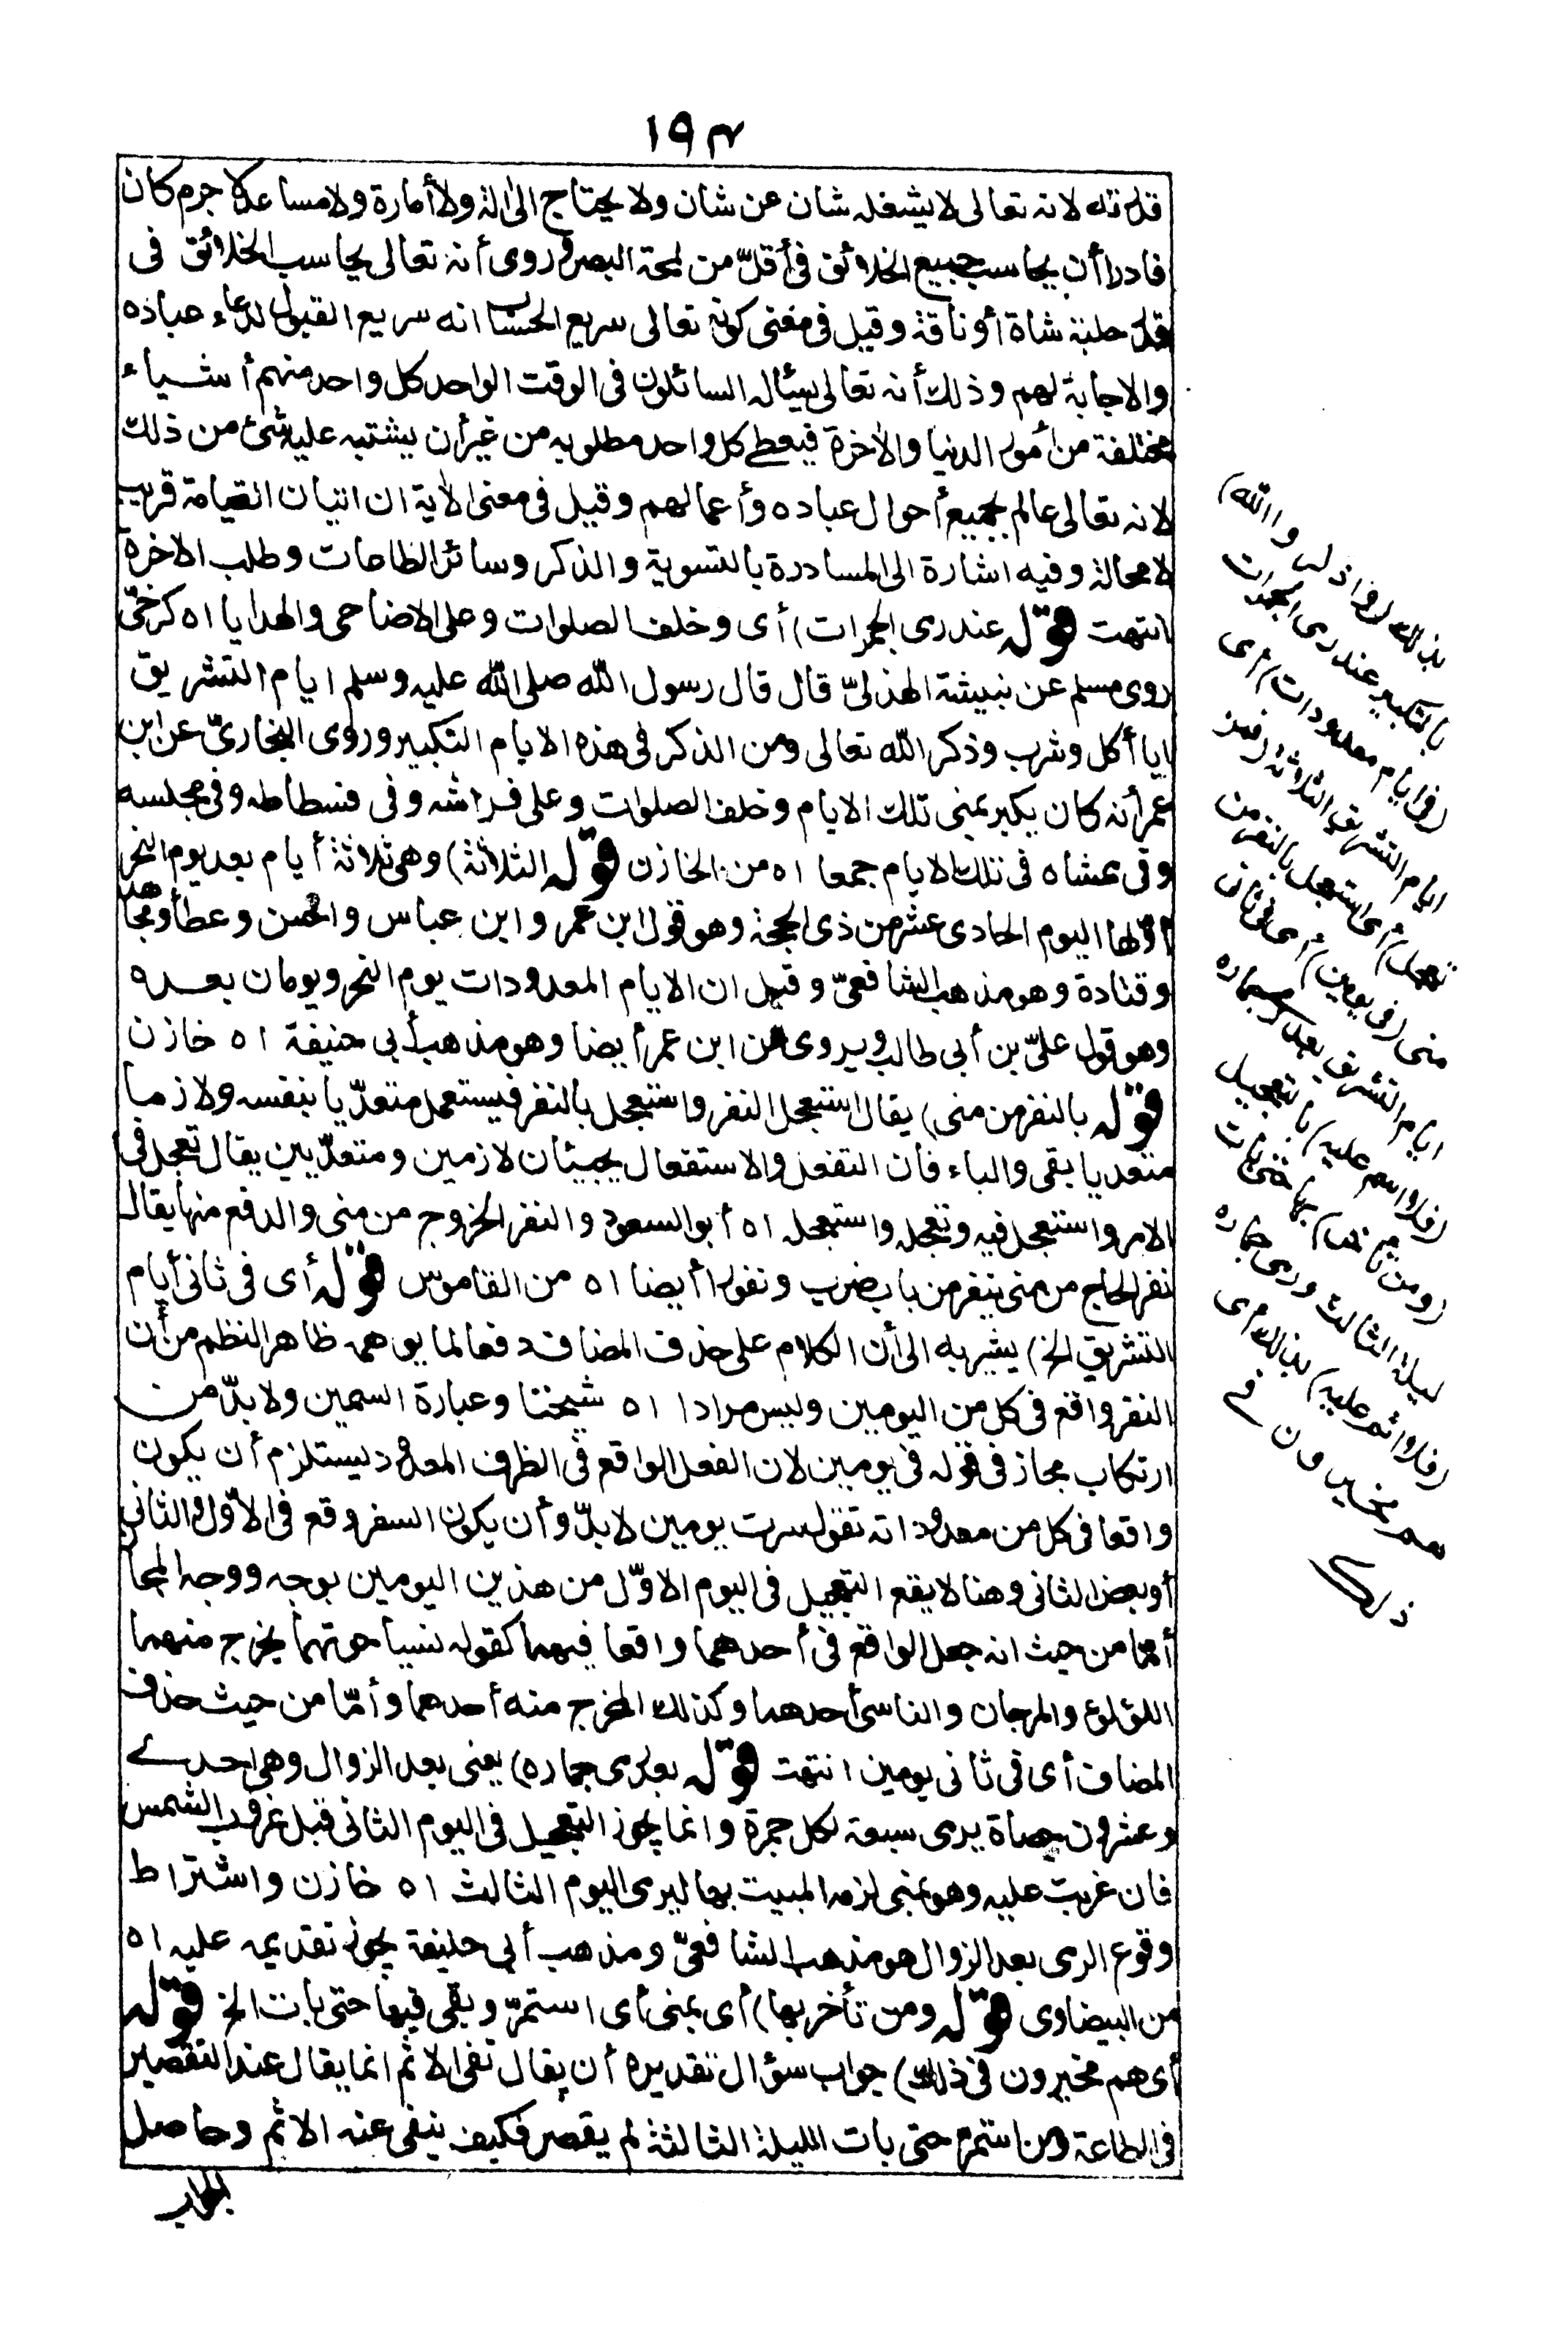 ١٩٣
قدرته لانه تعالى لا يشغله شان عن شان ولا يحتاج الى الة ولا أمارة ولا مساعد لا جرم كان
قادرا أن يحاسب جميع الخلائق في أقلّ من لمحة البصر وروى أنه تعالى يحاسب الخلائق فى
قدر حلبة شاة أو ناقة وقيل فى معنى كونه تعالى سريع الحساب انه سريع القبول لدعاء عباده
والاجابة لهم وذلك أنه تعالى يسئاله السائلون فى الوقت الواحد كل واحد منهم أشياء
مختلفة من أمور الدنيا والاخرة فيعطى كل واحد مطلوبه من غير أن يشتبه عليه شئ من ذلك
لانه تعالى عالم بجميع أحوال عباده وأعمالهم وقيل فى معنى الاية ان اتيان القيامة قريب
لا محالة وفيه اشارة الى المسادرة بالتسوية والذكر وسائر الطاعات وطلب الاخرة
انتهت قوله عند رمى الجمرات) أى وخلف الصلوات وعلى الاضاحى والهدايا اه كرخىّ
روى مسلم عن نبيشة الهذلىّ قال قال رسول الله صلى الله عليه وسلم ايام التشريق
ايا أكل وشرب وذكر الله تعالى ومن الذكر فى هذه الايام التكبير وروى البخارىّ عن ابن
عمر أنه كان يكبر بمنى تلك الايام وخلف الصلوات وعلى فراشه وفى فسطاطه وفى مجلسه
وفى ممشاه فى تلك الايام جمعا اه من الخازن قوله الثلاثة) وهى ثلاثة أيام بعد يوم النحر
أوّلها اليوم الحادى عشر من ذى الحجة وهو قول ابن عمر وابن عباس والحسن وعطأ ومجاهد
وقتادة وهو مذهب الشافعىّ وقيل ان الايام المعدودات يوم النحر ويومان بعده
وهو قول علىّ بن أبى طالب ويروى عن ابن عمر أيضا وهو مذهب أبى حنيفة اه خازن
قوله بالنفر من منى) يقال استعجل النفر واستعجل بالنفر فيستعمل متعدّيا بنفسه ولازما
متعديا بفى والباء فان التفعل والاستفعال يجيئان لازمين ومتعدّيين يقال تعجل فى
الامر واستعجل فيه وتعجله واستعجله اه أبو السعود والنفر الخروج من منى والدفع منها يقال
نفر الحاج من منى ينفر من باب ضرب ونفورا أيضا اه من القاموس قوله أى فى ثانى أيام
التشريق الخ) يشير به الى أن الكلام على حذف المضاف دفعا لما يوهمه ظاهر النظم من أن
النفر واقع فى كل من اليومين وليس مرادا اه شيخنا وعبارة السمين ولا بدّ من
ارتكاب مجاز فى قوله فى يومين لان الفعل الواقع فى الظرف المعدود يستلزم أن يكون
واقعا فى كل من معدوداته تقول سرت يومين لا بدّ وأن يكون السفر وقع فى الاوّل والثانى
أو بعض الثانى وهنا لا يقع التعجيل فى اليوم الاوّل من هذين اليومين بوجه ووجه المجاز
أمّا من حيث انه جعل الواقع فى أحدهما واقعا فيهما كقوله نسيا حوتهما يخرج منهما
اللؤلؤ والمرجان والناسى أحدهما وكذلك المخرج منه أحدهما وأمّا من حيث حذف
المضاف أى فى ثانى يومين انتهت قوله بعد رمى جماره) يعنى بعد الزوال وهى احدى
وعشرون حصاة يرمى سبعة لكل جمرة وانما يجوز التعجيل فى اليوم الثانى قبل غروب الشمس
فان غربت عليه وهو بمنى لزمه المبيت بها ليرمى اليوم الثالث اه خازن واشتراط
وقوع الرمى بعد الزوال هو مذهب الشافعىّ ومذهب أبى حنيفة يجوز تقديمه عليه اه
من البيضاوى قوله ومن تأخر بها) أى بمنى أى استمرّ وبقى فيها حتى بات الخ قوله
أى هم مخيرون فى ذلك) جواب سؤال تقديره أن يقال نفى الاثم انما يقال عند التقصير
فى الطاعة ومن استمر حتى بات الليلة الثالثة لم يقصر فكيف ينفى عنه الاثم وحاصل
الجواب
بذلك (واذكروا الله)
بالتكبير عند رمى الجمرات
(فى ايام معدودات) أى
ايام التشريق الثلاثة (فمن
تعجل) أى استعجل بالنفر من
منى (فى يومين) أى فى ثانى
ايام التشريق بعد رمى جماره
(فلا اثم عليه) بالتعجيل
(ومن تأخر) بها حتى بات
ليلة الثالث ورمى جماره
(فلا اثم عليه) بذلك أى
هم مخيرون فى
ذلك